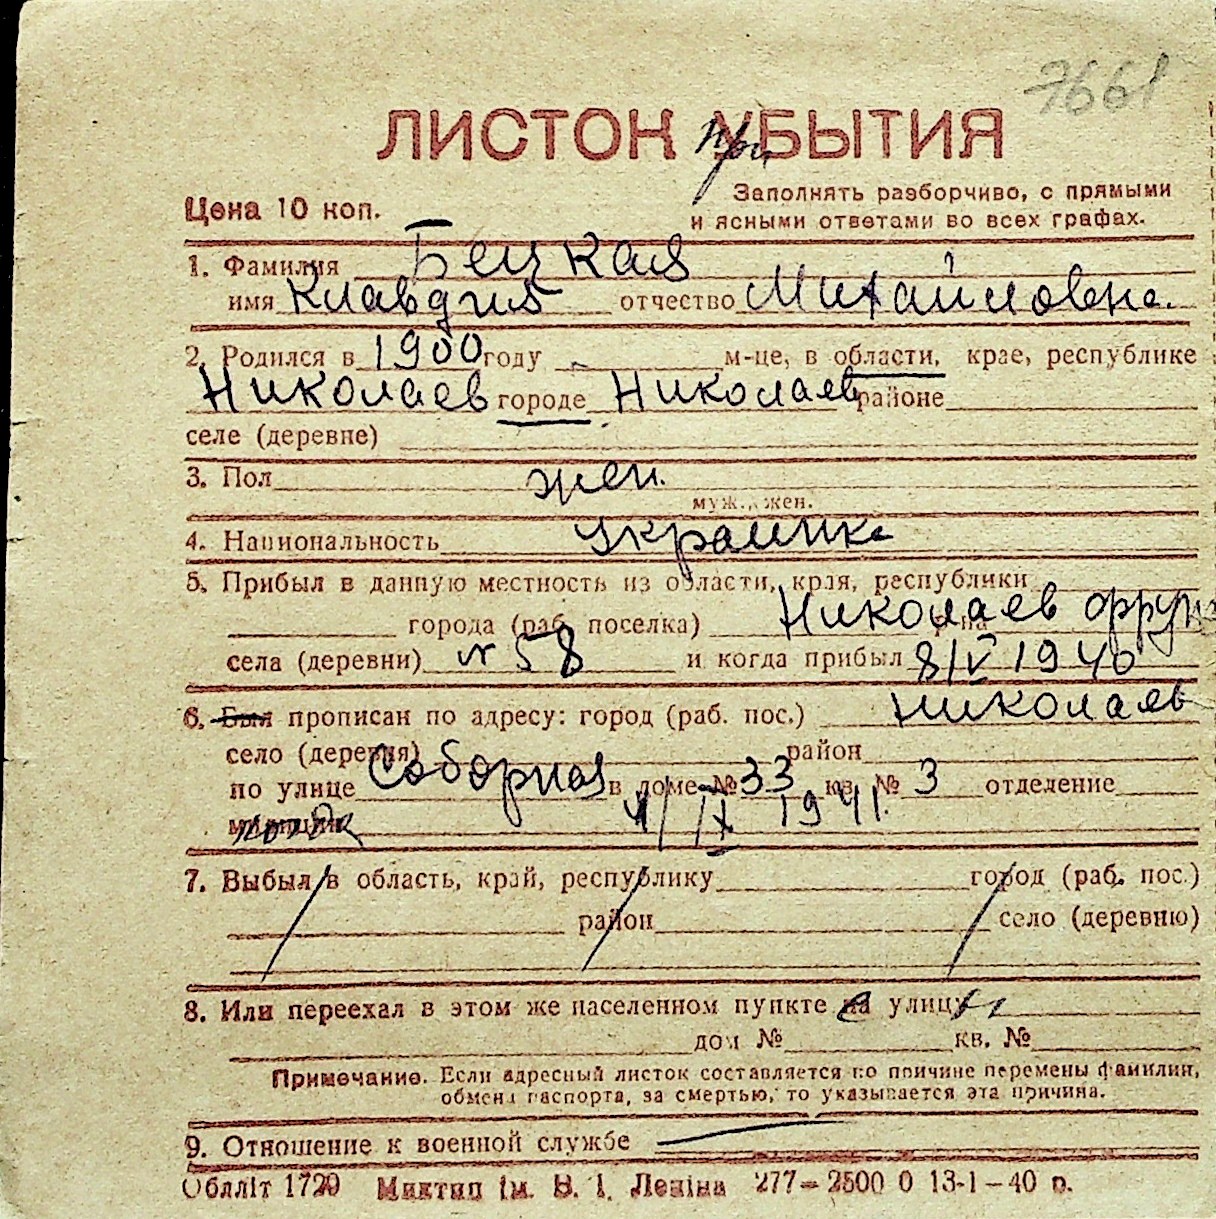 7661
ЛИСТОК УБЫТИЯ
при
Заполнять разборчиво, с прямыми
Цена 10 коп.
и ясными ответами во всех графах.
1. Фамилия Бецкая
имя Клавдия отчество Михайловна.
2. Родился в 1900 году м-це, в области, крае, республике
Николаев городе Николаев районе
селе (деревне)
3. Пол жен.
муж., жен.
4. Национальность украинка
5. Прибыл в данную местность из области, края, республики
города (раб. поселка) Николаев р-на Фрунз
села (деревни) № 58 и когда прибыл 8/V 1940
6. Был прописан по адресу: город (раб. пос.) Николаев
село (деревня) район
по улице Соборная в доме № 33 кв. № 3 отделение
милиции 4/IX 1941.
7. Выбыл в область, край, республику город (раб. пос.)
район село (деревню)
8. Или переехал в этом же населенном пункте на улицу
дом № кв. №
Примечание. Если адресный листок составляется по причине перемены фамилии,
обмена паспорта, за смертью, то указывается эта причина.
9. Отношение к военной службе
Облліт 1729 Миктип ім. В. І. Леніна 277—2500 0 13-1—40 р.